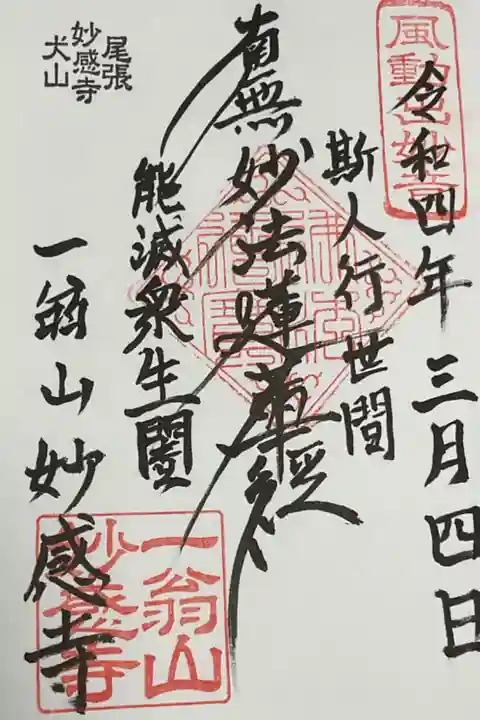 風動出妙音
令和四年三月四日
斯人行世間
南無妙法蓮華經
能滅衆生闇
尾張
妙感寺
犬山
一翁山妙感寺
一翁山
妙感寺